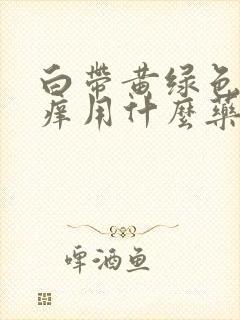 白带黄绿色
痒用什麼藥
啤酒鱼